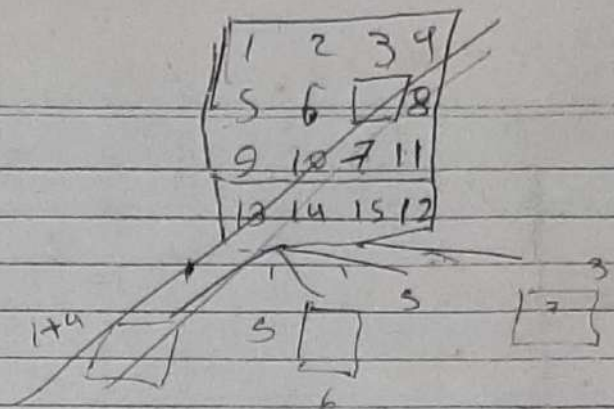 1 2 3 4
5 6 8
9 10 7 11
13 14 15 12
3
1+4 5 5 7
6